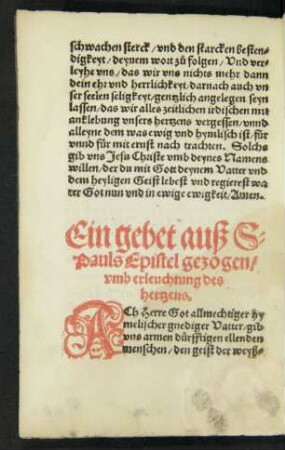 schwachen sterck / vnd den starcken besten-
digkeyt / deynem wort zů folgen / Vnd ver-
leyhe vns / das wir vns nichts mehr dann
dein ehr vnd herrlichkeyt / darnach auch vn
ser seelen seligkeyt / gentzlich angelegen seyn
lassen / das wir alles zeitlichen irdischen mit
anklebung vnsers hertzens vergessen / vnnd
alleyne dem was ewig vnd hymlisch ist / für
vnnd für mit ernst nach trachten. Solchs
gib vns Jesu Christe vmb deynes Namens
willen / der du mit Gott deynem Vatter vnd
dem heyligen Geist lebest vnd regierest wa
rer Got nun vnd in ewige ewigkeit / Amen.
Ein gebet auß S.
Pauls Epistel gezogen /
vmb erleuchtung des
hertzens.
ACh Herre Got allmechtiger hy
melischer gnediger Vatter / gib
vns armen dürfftigen ellenden
menschen / den geist der weyß-